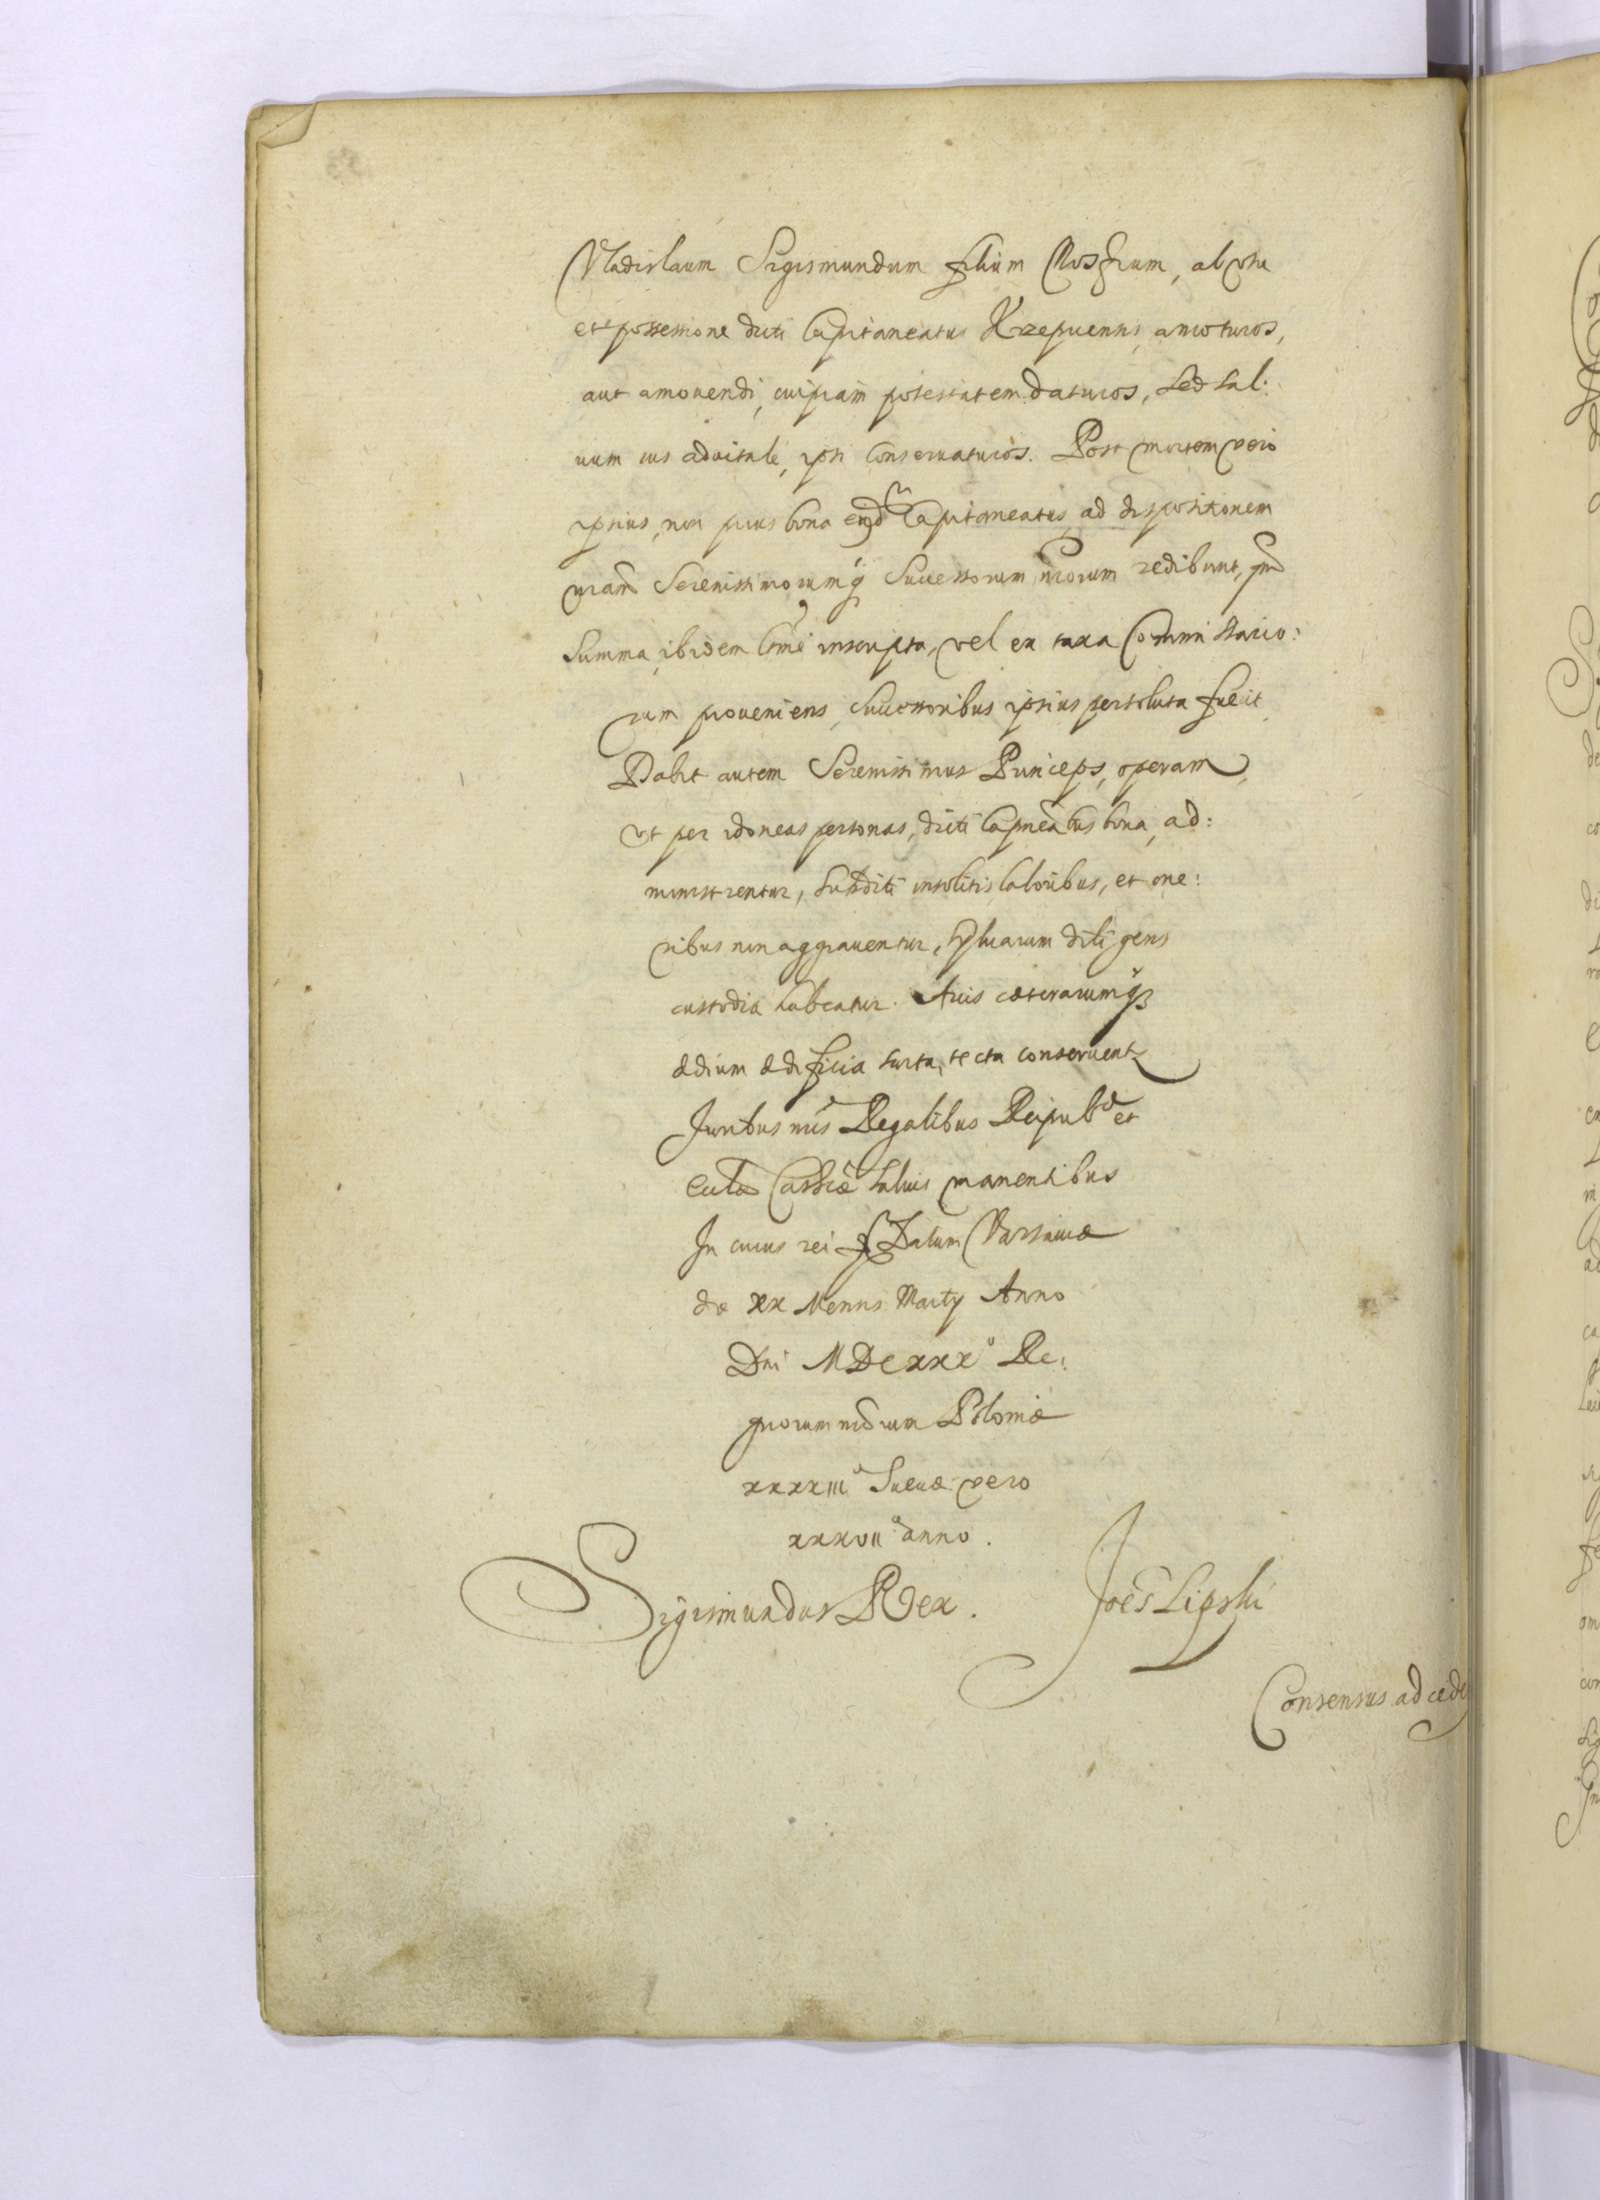 Vladislaum Sigismundum filium Nostrum, ab usu
et possessione dicti Capitaneatus Krzepicensis, amoturos,
aut amovendi, cuipiam potestatem daturos, sed sal:
uum ius aduitale, ipsi conseruaturos. Post mortem vero
ipsius, non prius bona eiusd Capitaneatus ad dispositionem
nram Serenissimorumq Successorum nrorum redibunt, qm
Summa ibidem inscripta, vel ex taxa Commissario:
rum proueniens, Successoribus ipsius persoluta fuerit
Dabit autem Serenissimus Princeps, operam,
ut per idoneas personas, dicti Capneatus bona, ad:
ministrentur, subditi insolitis laboribus, et one:
ribus non aggrauentur, Syluarum diligens
custodia habeatur. Arcis caeterarumq3
aedium aedificia sarta, tecta conseruent
Juribus nris Regalibus Reipub et
Ecclae Cathcae saluis manentibus
In cuius rei fidem Datum Varsauiae
die XX Mensis Marty Anno
Dni MDCXXXo Re:
gnorum nrorum Poloniae
XXXXIIIo Sueciae vero
XXXVIIo anno.
Sigismundus Rex.
Joes Lipski
Consensus ad cede